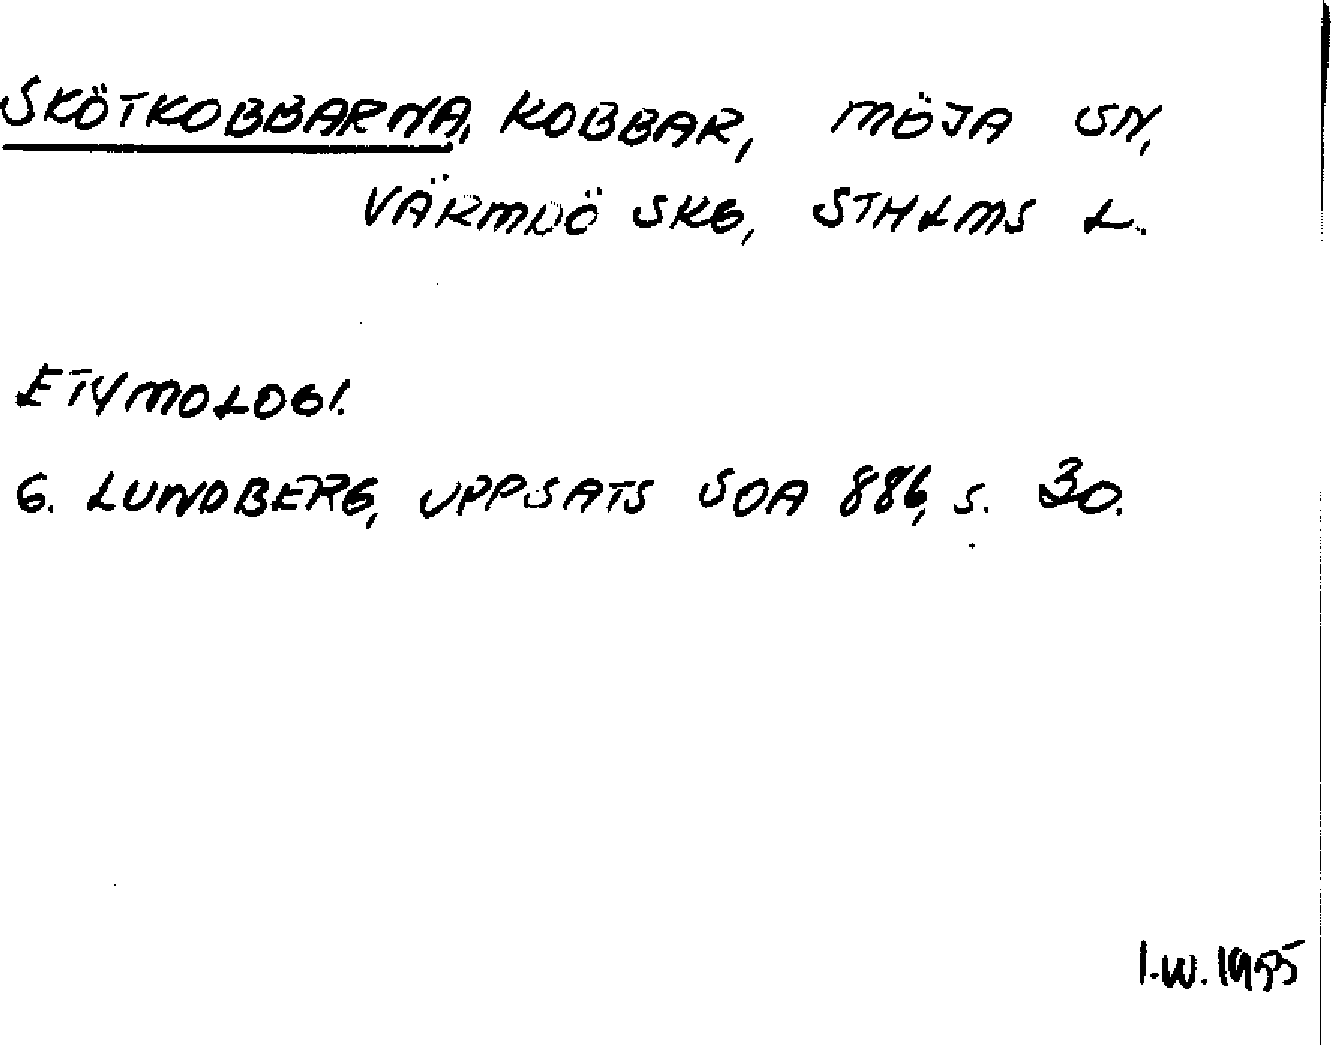 SKÖTKOBBARNA, KOBBAR, MÖJA SN,
VÄRMDÖ SKG, STHLMS L.
ETYMOLOGI.
G. LUNDBERG, UPPSATS SOA 886, s. 30.
I.W. 1955